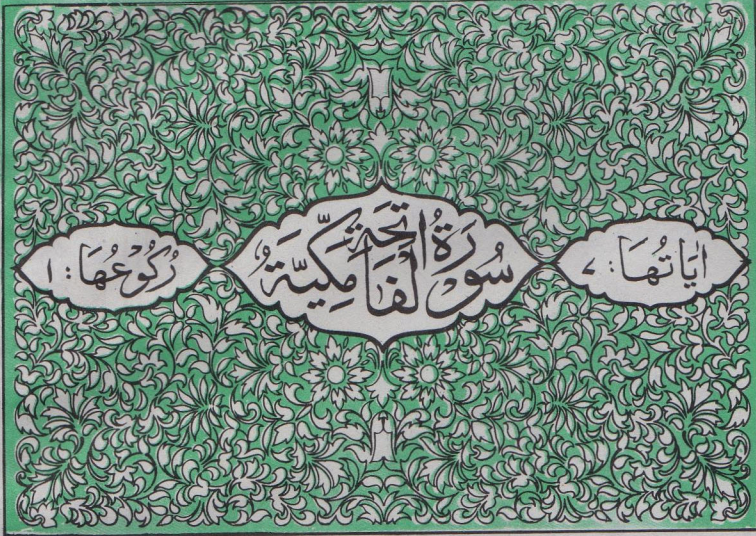 اٰيَاتُهَا: ٧
سُوْرَةُ الْفَاتِحَةِ مَكِّيَّةٌ
رُكُوْعُهَا: ١